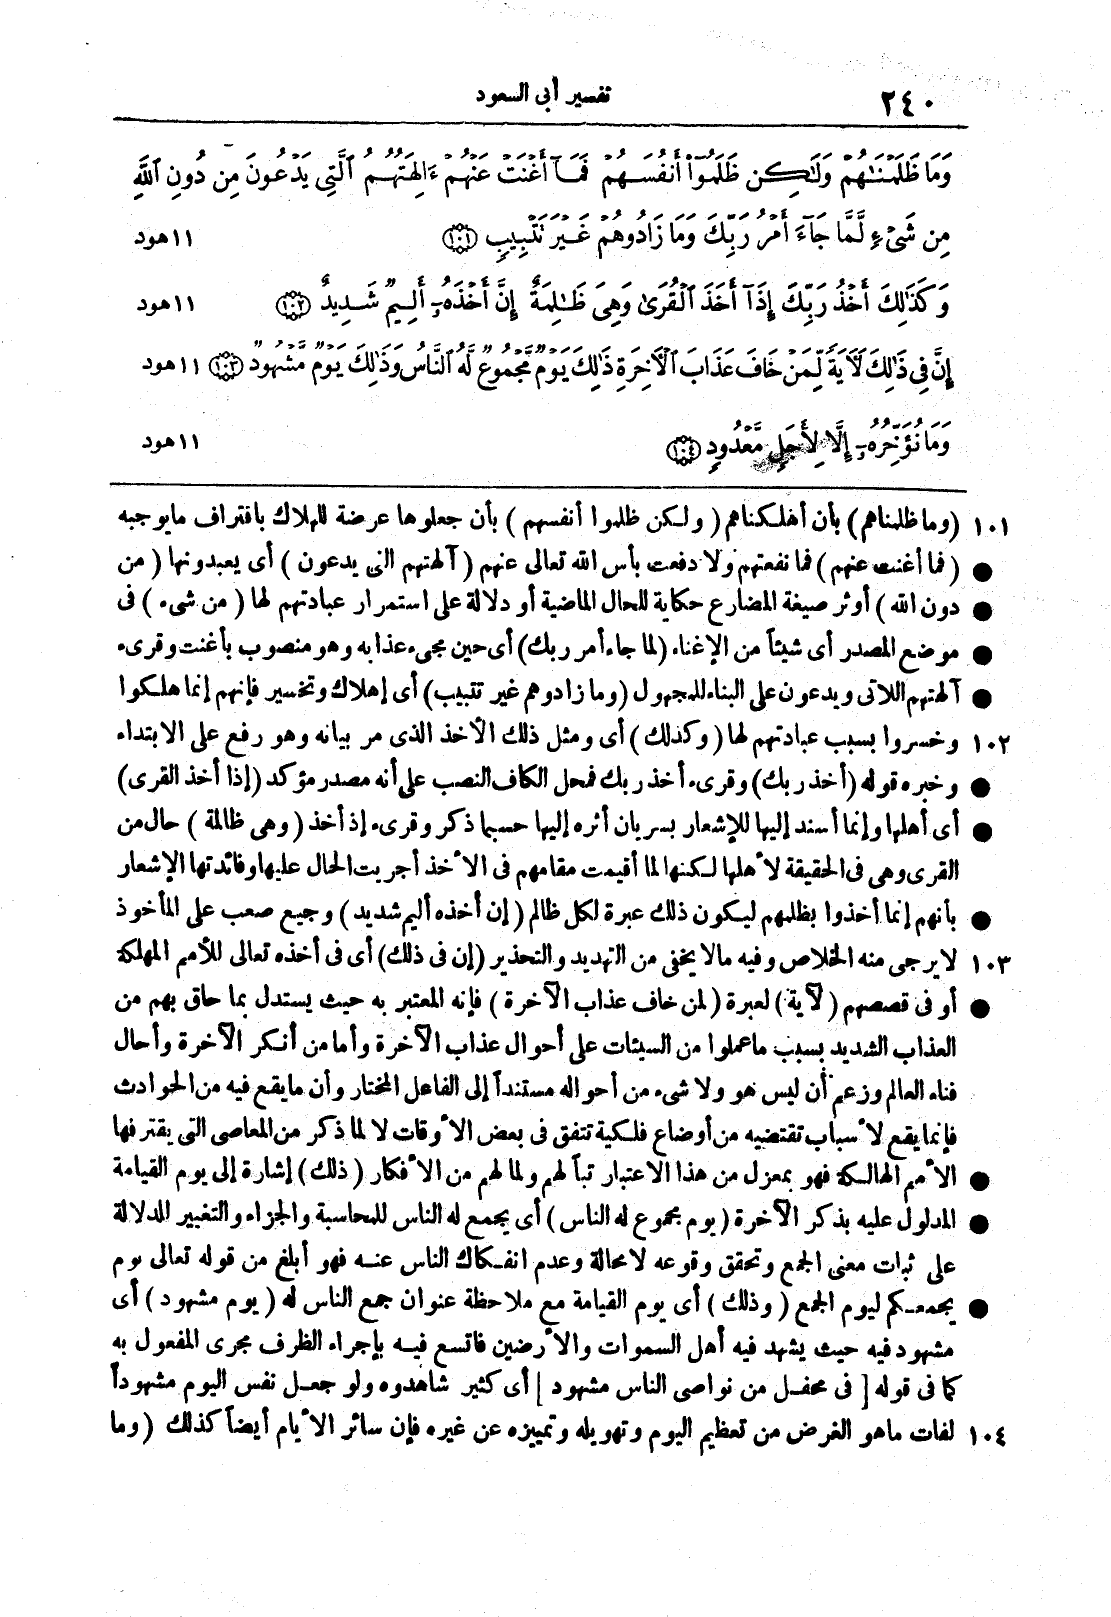 ٢٤٠
تفسير أبى السعود
وَمَا ظَلَمْنَٰهُمْ وَلَٰكِن ظَلَمُوٓا۟ أَنفُسَهُمْ فَمَآ أَغْنَتْ عَنْهُمْ ءَالِهَتُهُمُ ٱلَّتِى يَدْعُونَ مِن دُونِ ٱللَّهِ
مِن شَىْءٍ لَّمَّا جَآءَ أَمْرُ رَبِّكَ وَمَا زَادُوهُمْ غَيْرَ تَتْبِيبٍ ١٠١ ١١ هود
وَكَذَٰلِكَ أَخْذُ رَبِّكَ إِذَآ أَخَذَ ٱلْقُرَىٰ وَهِىَ ظَٰلِمَةٌ إِنَّ أَخْذَهُۥٓ أَلِيمٌ شَدِيدٌ ١٠٢ ١١ هود
إِنَّ فِى ذَٰلِكَ لَءَايَةً لِّمَنْ خَافَ عَذَابَ ٱلْءَاخِرَةِ ذَٰلِكَ يَوْمٌ مَّجْمُوعٌ لَّهُ ٱلنَّاسُ وَذَٰلِكَ يَوْمٌ مَّشْهُودٌ ١٠٣ ١١ هود
وَمَا نُؤَخِّرُهُۥٓ إِلَّا لِأَجَلٍ مَّعْدُودٍ ١٠٤ ١١ هود
١٠١ (وما ظلمناهم) بأن أهلكناهم (ولكن ظلموا أنفسهم) بأن جعلوها عرضة للهلاك باقتراف مايوجبه
● (فما أغنت عنهم) فما نفعتهم ولا دفعت بأس الله تعالى عنهم (آلهتهم التى يدعون) أى يعبدونها (من
● دون الله) أوثر صيغة المضارع حكاية للحال الماضية أو دلالة على استمرار عبادتهم لها (من شىء) فى
● موضع المصدر أى شيئاً من الإغناء (لما جاء أمر ربك) أى حين مجىء عذابه وهو منصوب بأغنت وقرىء
● آلهتهم اللاتى ويدعون على البناء للمجهول (وما زادوهم غير تتبيب) أى إهلاك وتخسير فإنهم إنما هلكوا
١٠٢ وخسروا بسبب عبادتهم لها (وكذلك) أى ومثل ذلك الأخذ الذى مر بيانه وهو رفع على الابتداء
● وخبره قوله (أخذ ربك) وقرىء أخذ ربك فمحل الكاف النصب على أنه مصدر مؤكد (إذا أخذ القرى)
● أى أهلها وإنما أسند إليها للإشعار بسريان أثره إليها حسبما ذكر وقرىء إذ أخذ (وهى ظالمة) حال من
القرى وهى فى الحقيقة لأهلها لكنها لما أقيمت مقامهم فى الأخذ أجريت الحال عليها وفائدتها الإشعار
● بأنهم إنما أخذوا بظلمهم ليكون ذلك عبرة لكل ظالم (إن أخذه أليم شديد) وجيع صعب على المأخوذ
١٠٣ لايرجى منه الخلاص وفيه مالا يخفى من التهديد والتحذير (إن فى ذلك) أى فى أخذه تعالى للأمم المهلكة
● أو فى قصصهم (لآية) لعبرة (لمن خاف عذاب الآخرة) فإنه المعتبر به حيث يستدل بما حاق بهم من
العذاب الشديد بسبب ماعملوا من السيئات على أحوال عذاب الآخرة وأما من أنكر الآخرة وأحال
فناء العالم وزعم أن ليس هو ولا شىء من أحواله مستنداً إلى الفاعل المختار وأن مايقع فيه من الحوادث
فإنما يقع لأسباب تقتضيه من أوضاع فلكية تتفق فى بعض الأوقات لا لما ذكر من المعاصى التى يقترفها
● الأمم الهالكة فهو بمعزل من هذا الاعتبار تباً لهم ولما لهم من الأفكار (ذلك) إشارة إلى يوم القيامة
● المدلول عليه بذكر الآخرة (يوم مجموع له الناس) أى يجمع له الناس للمحاسبة والجزاء والتغيير للدلالة
على ثبات معنى الجمع وتحقق وقوعه لامحالة وعدم انفكاك الناس عنه فهو أبلغ من قوله تعالى يوم
● يجمعكم ليوم الجمع (وذلك) أى يوم القيامة مع ملاحظة عنوان جمع الناس له (يوم مشهود) أى
مشهود فيه حيث يشهد فيه أهل السموات والأرضين فاتسع فيه بإجراء الظرف مجرى المفعول به
كما فى قوله [فى محفل من نواصى الناس مشهود] أى كثير شاهدوه ولو جعل نفس اليوم مشهوداً
١٠٤ لفات ماهو الغرض من تعظيم اليوم وتهويله وتمييزه عن غيره فإن سائر الأيام أيضاً كذلك (وما